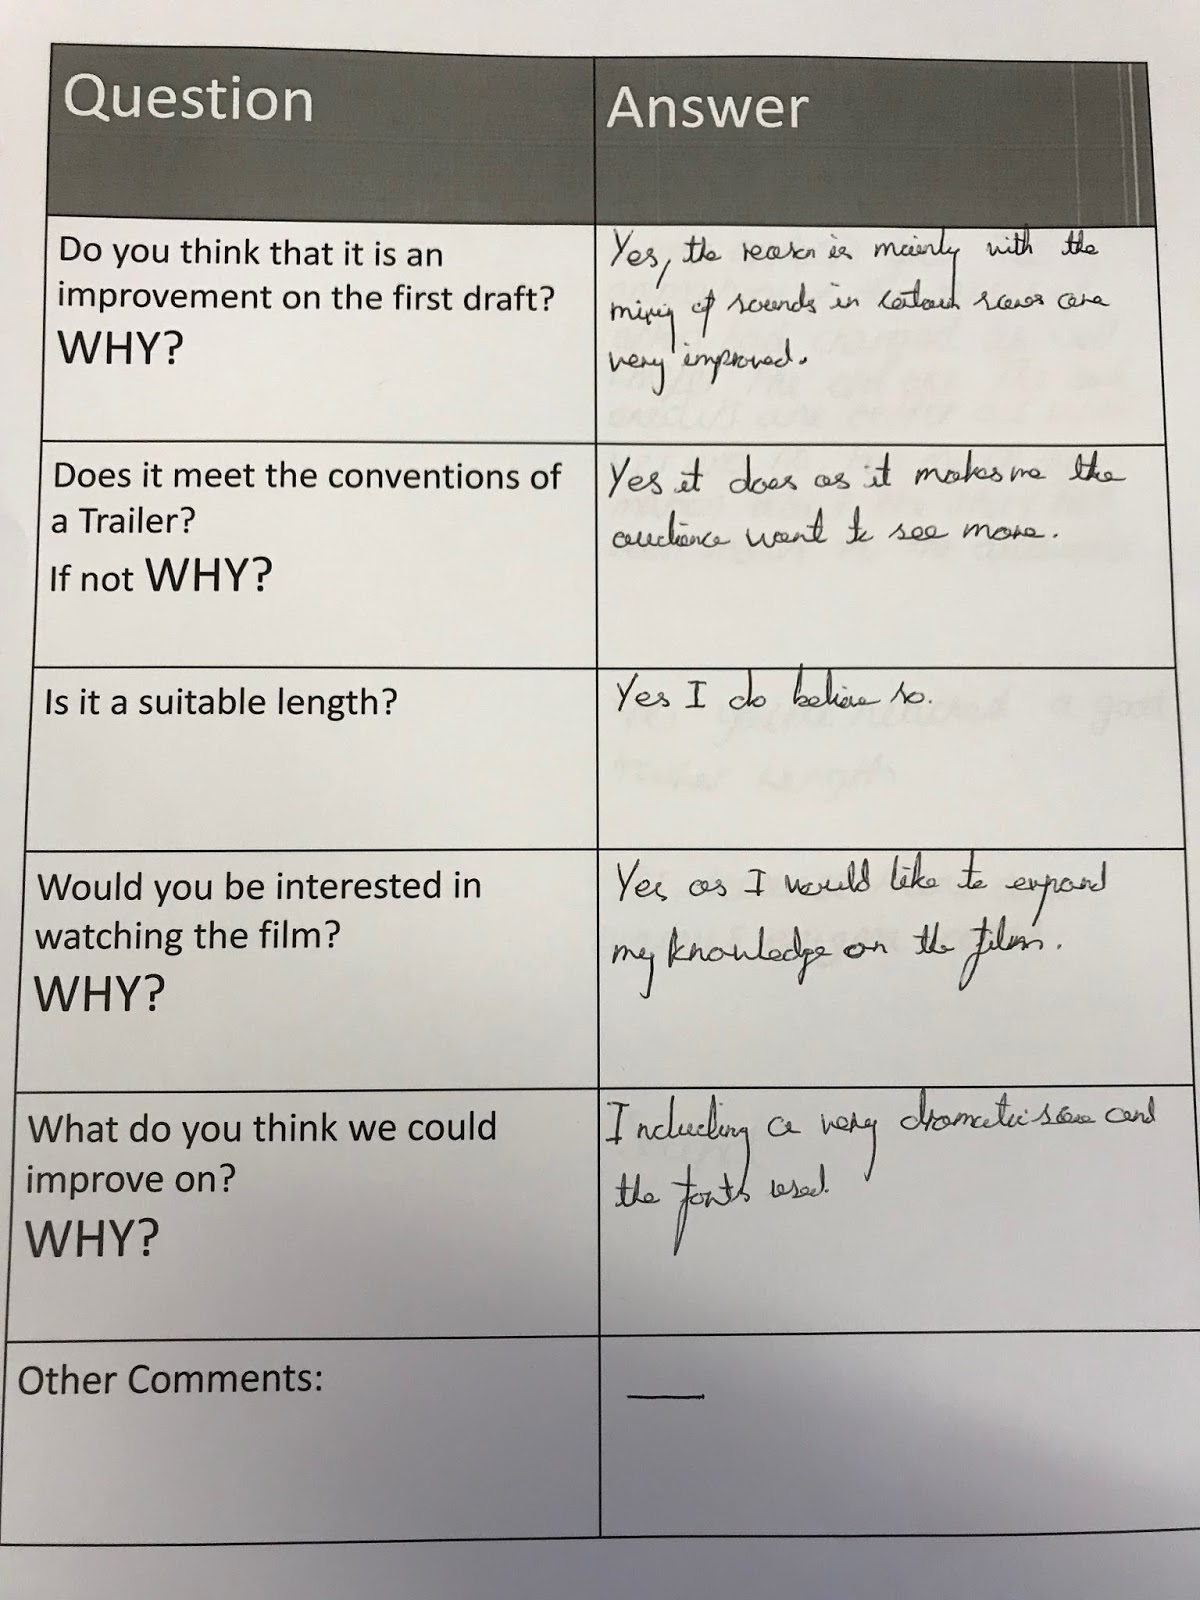 Question
Answer
Do you think that it is an
improvement on the first draft?
WHY?
Yes, the reason is mainly with the
mixing of sounds in certain scenes are
very improved.
Does it meet the conventions of
a Trailer?
If not WHY?
Yes it does as it makes me the
audience want to see more.
Is it a suitable length?
Yes I do believe so.
Would you be interested in
watching the film?
WHY?
Yes as I would like to expand
my knowledge on the film.
What do you think we could
improve on?
WHY?
Including a very dramatic scene and
the fonts used.
Other Comments:
—